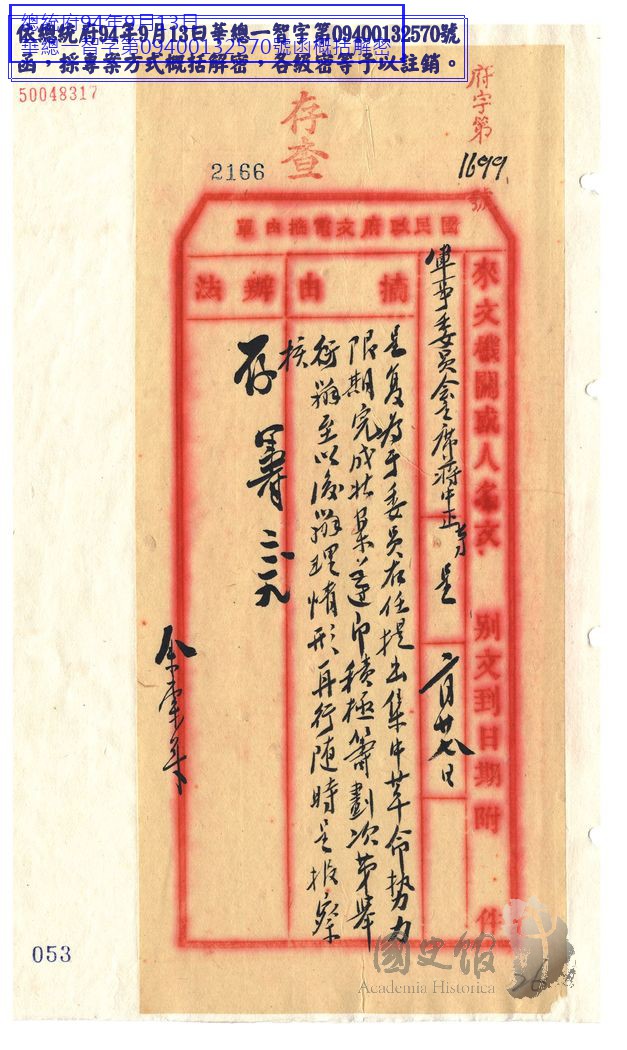 總統府94年9月13日
華總一智字第09400132570號函概括解密
依總統府94年9月13日華總一智字第09400132570號
函，採專案方式概括解密，各級密等予以註銷。
50048317
府字第
1699
號
存查
2166
國民政府文電摘由單
來文機關或人名 文別 文到日期 附件
軍事委員會主席蔣中正等
呈
二月廿八日
摘由
呈复為于委員右任提出集中革命勢力
限期完成北伐案遵即積極籌劃次第舉
行辦至以後辦理情形再行随時呈报察
核
辦法
存
三一九
053
國史館
Academia Historica
26